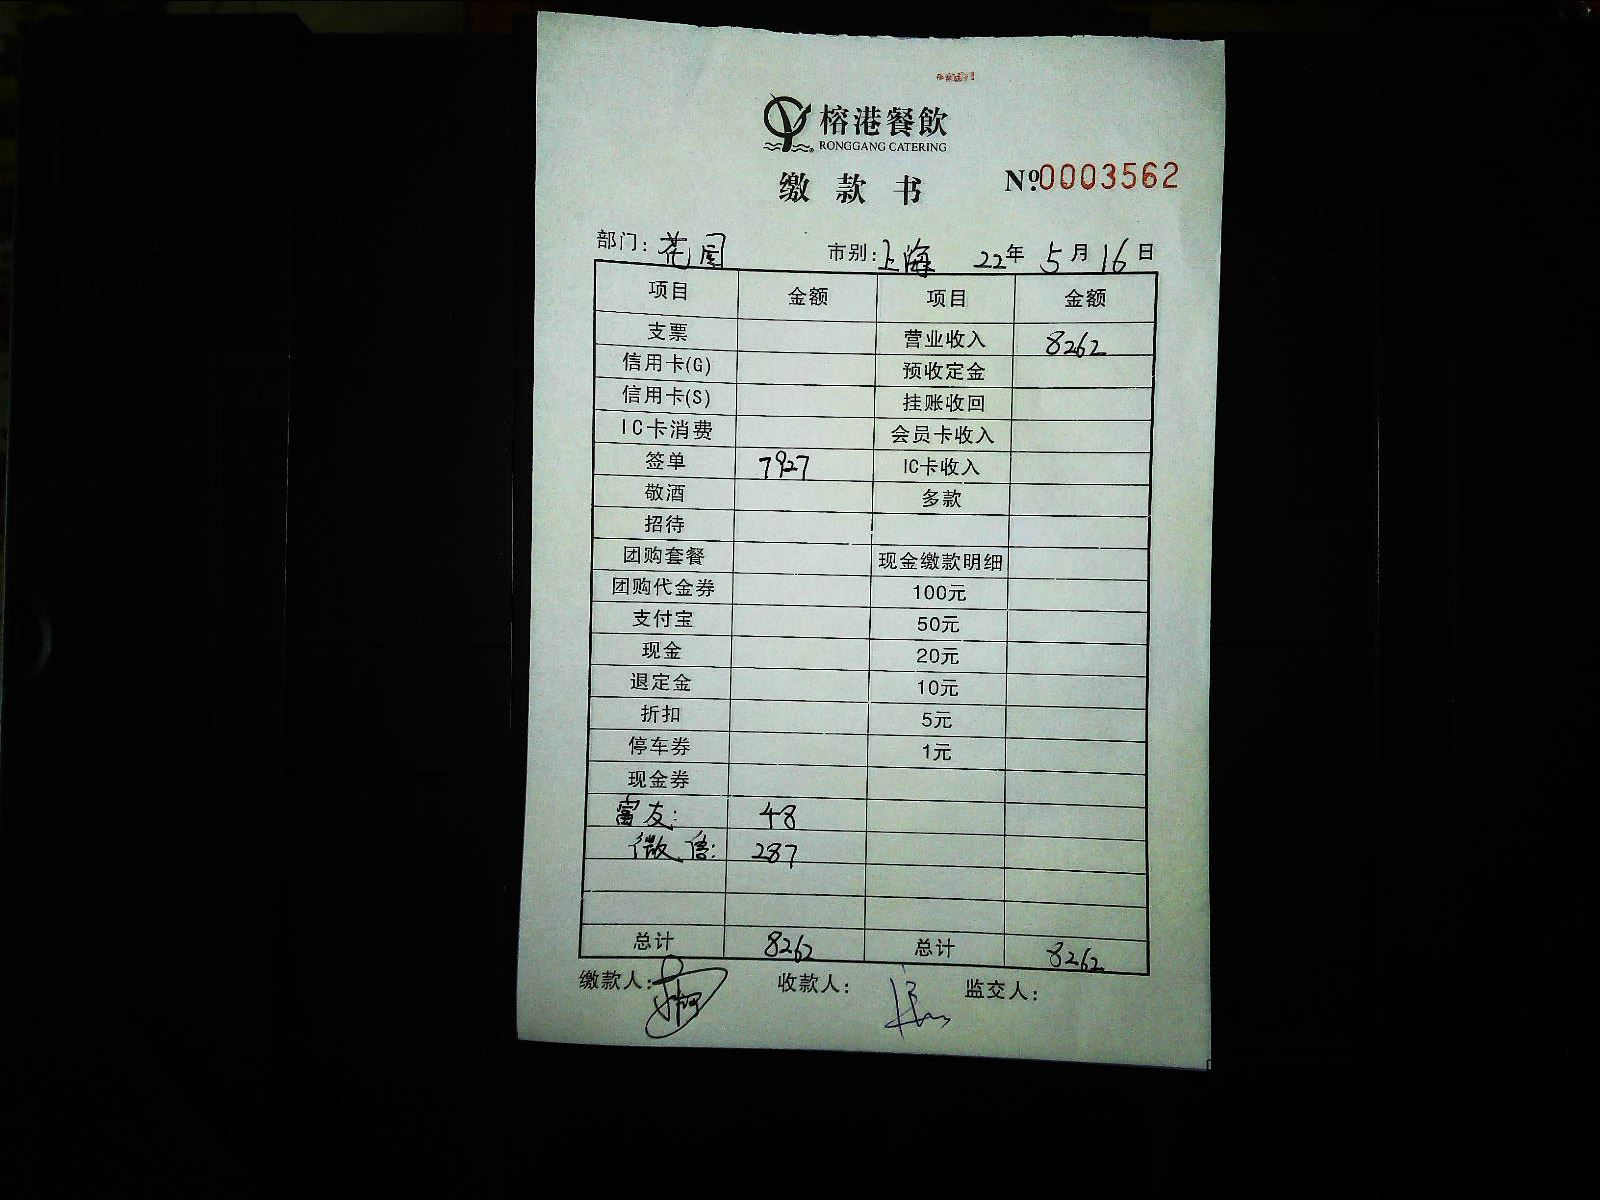 榕港餐飲
RONGGANG CATERING
缴款书 №0003562
部门: 花园 市别: 上海 22年 5月 16日
项目 金额 项目 金额
支票 营业收入 8262
信用卡(G) 预收定金
信用卡(S) 挂账收回
IC卡消费 会员卡收入
签单 7927 IC卡收入
敬酒 多款
招待
团购套餐 现金缴款明细
团购代金券 100元
支付宝 50元
现金 20元
退定金 10元
折扣 5元
停车券 1元
现金券
富友: 48
微信: 287
总计 8262 总计 8262
缴款人: 收款人: 监交人: